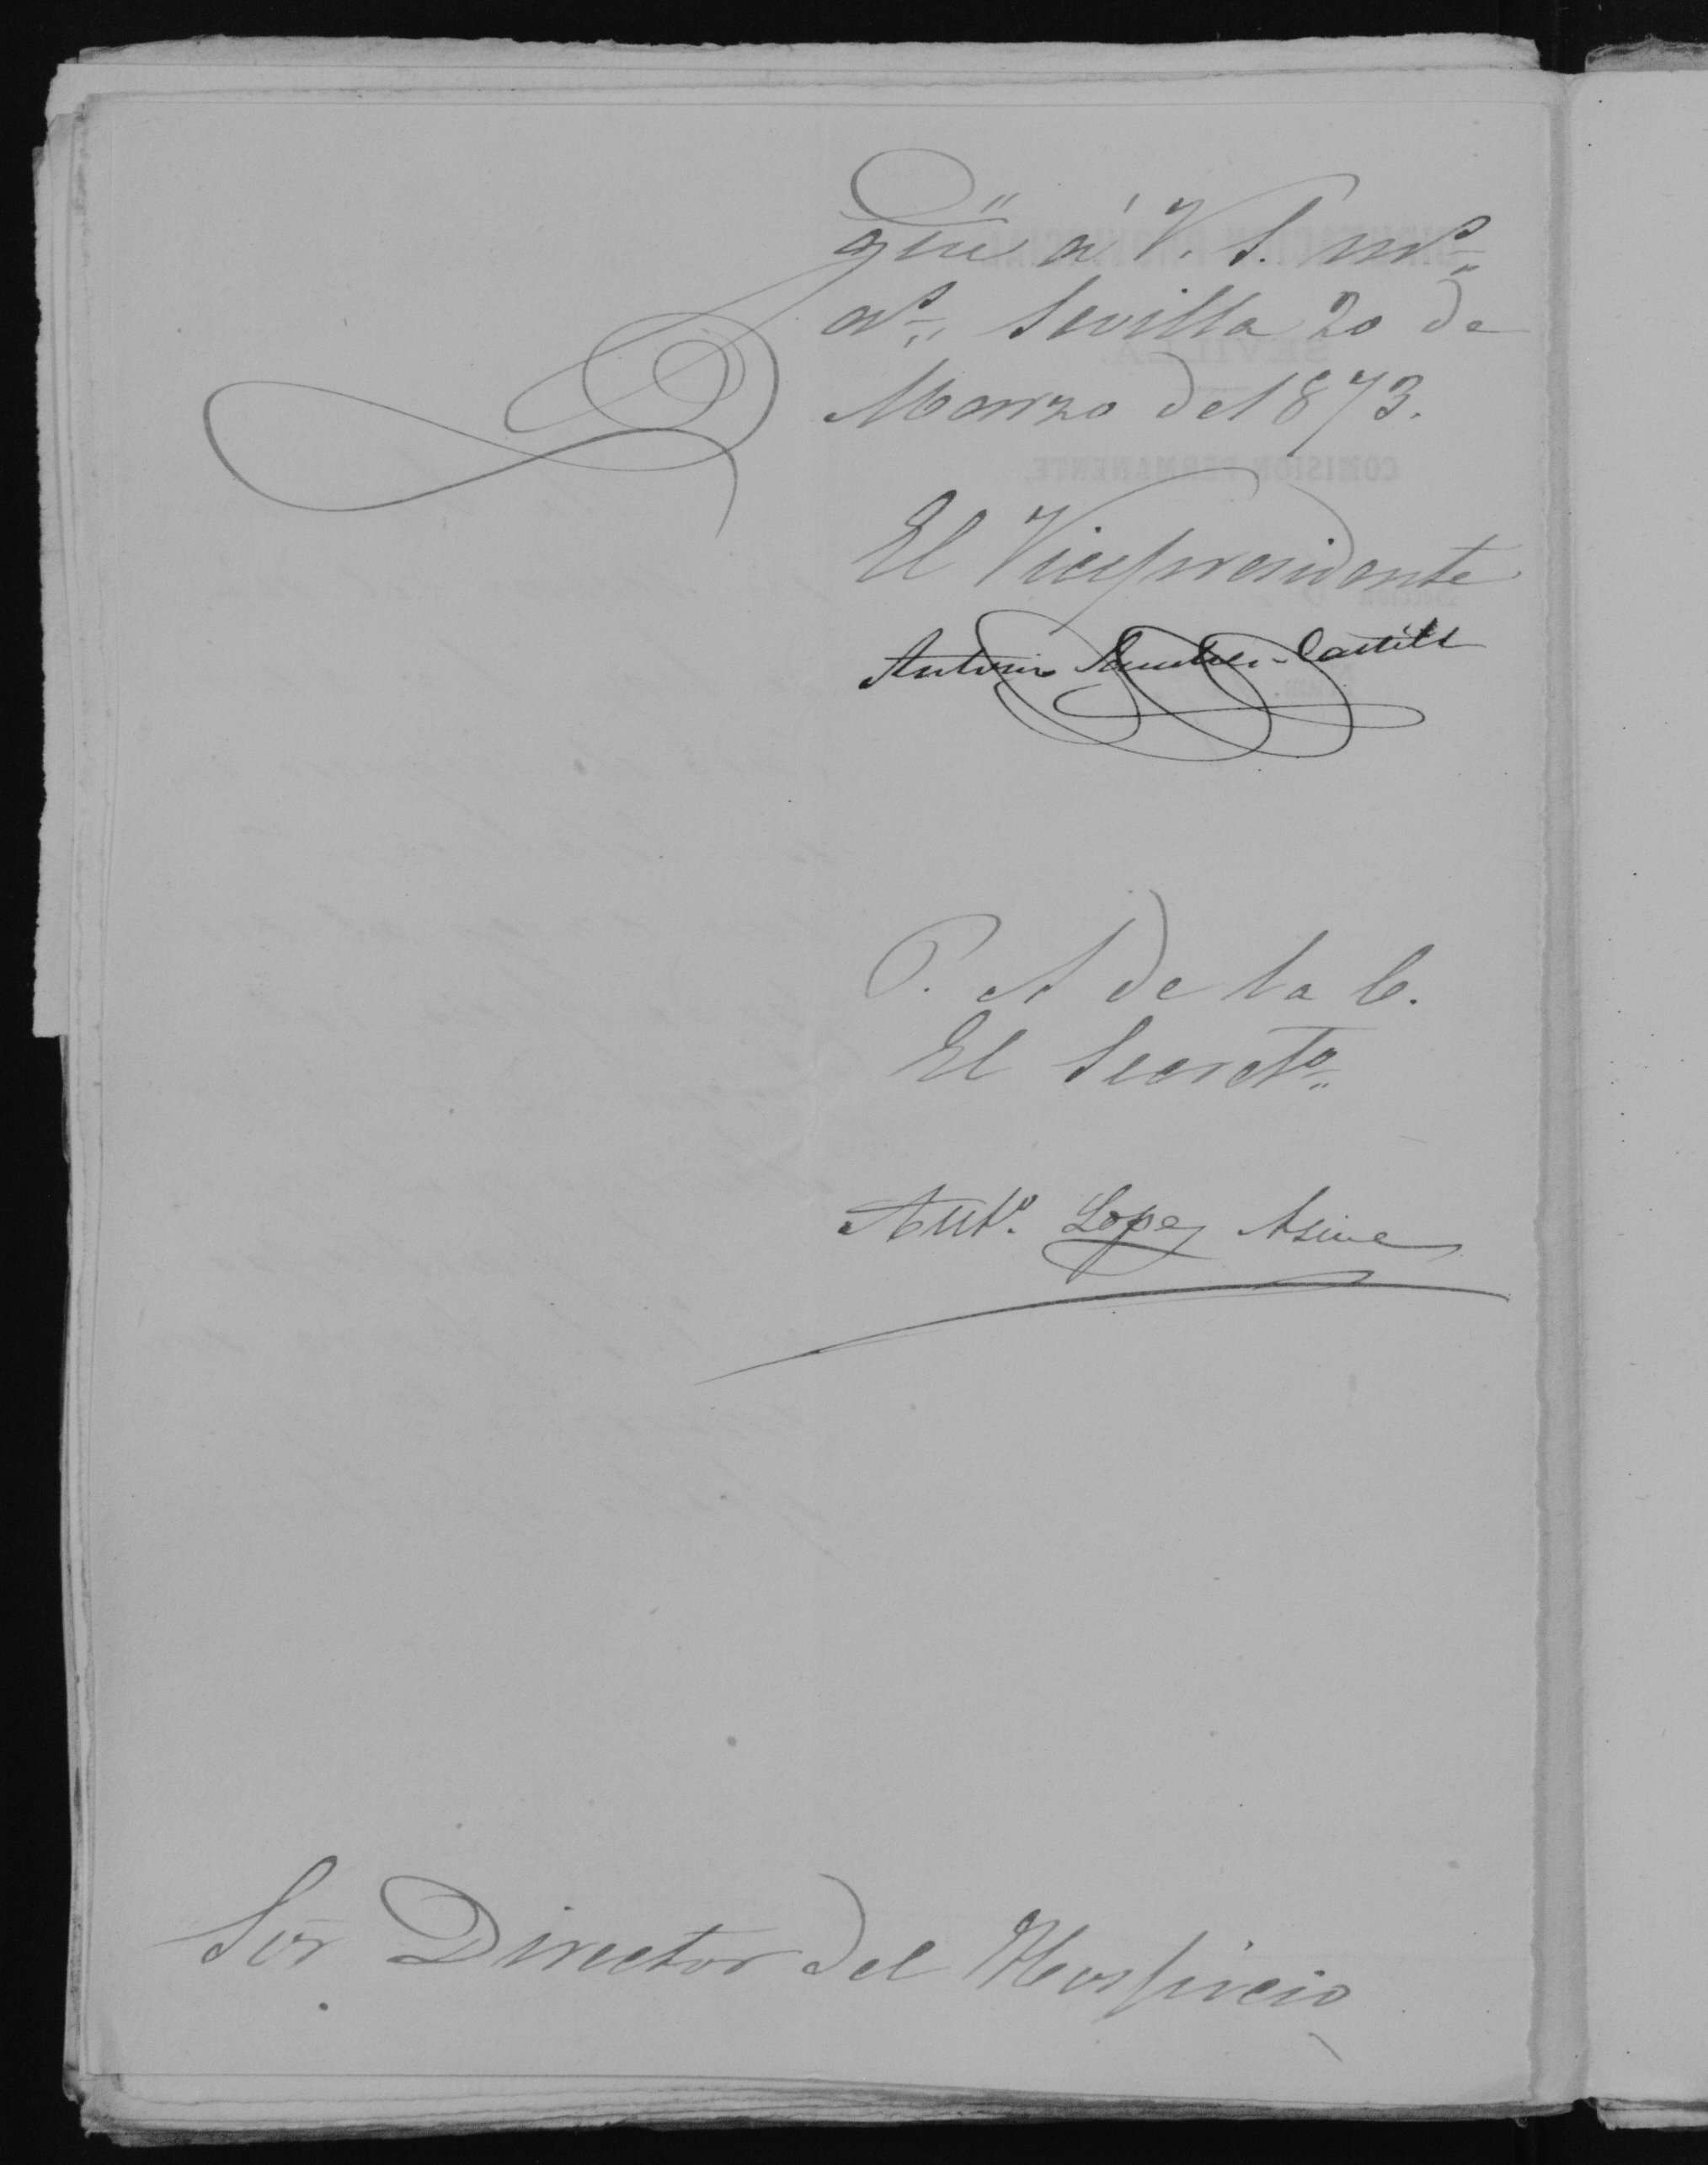 güe á V. S. m.s
a.s Sevilla 20 de
Marzo de 1873.
El Vicepresidente
Antonio Sanchez-Castilla
P. A de la C.
El Secret.o
Ant.o Lopez
Sor Director del Hospicio